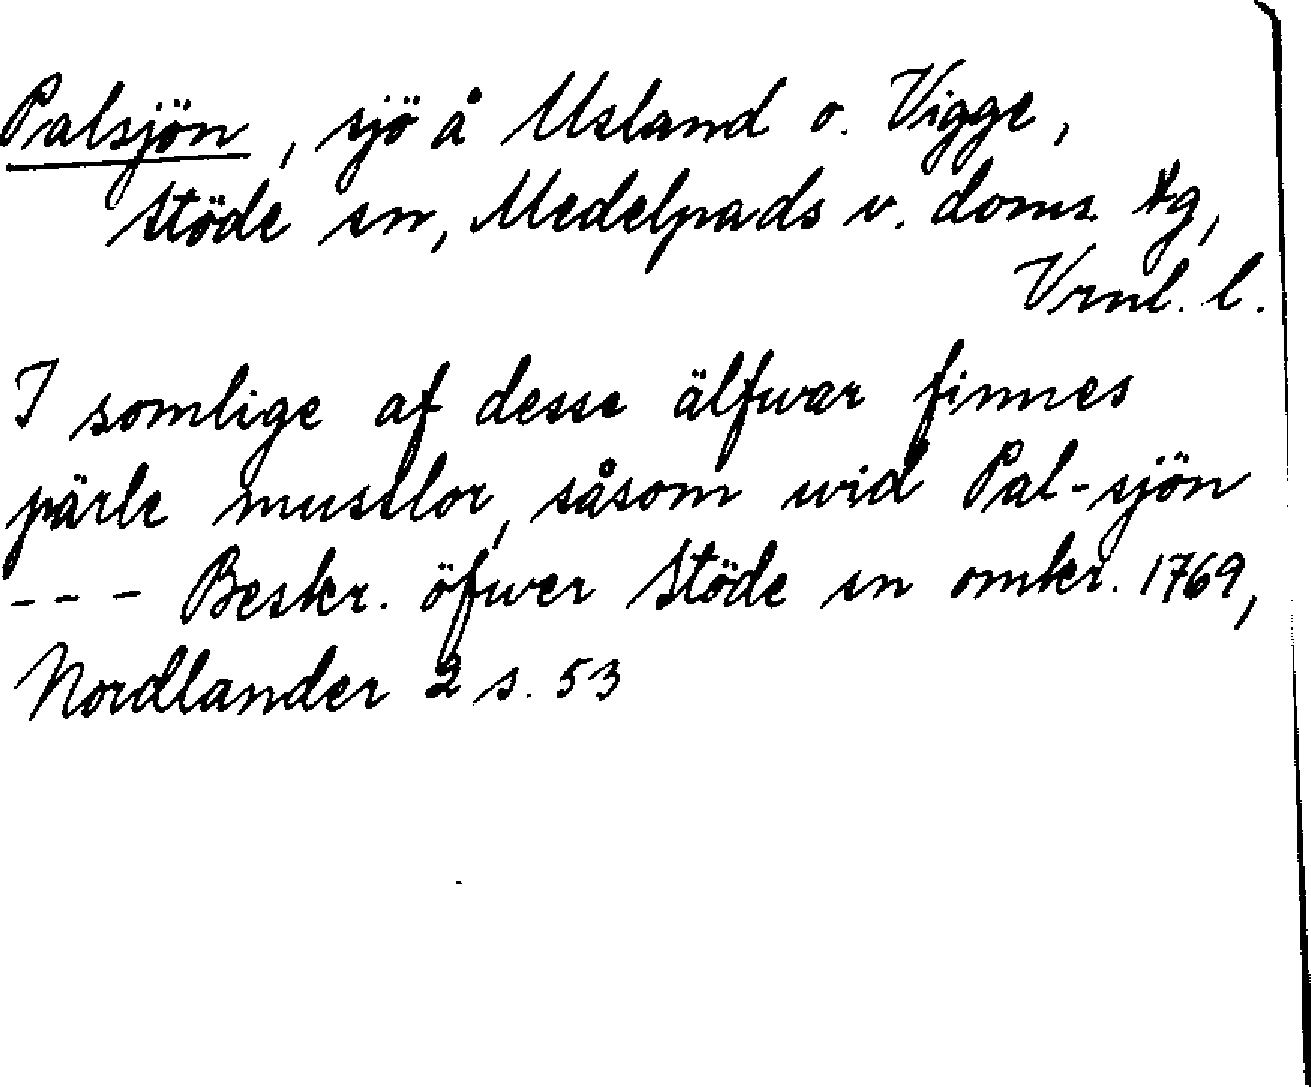 Palsjön, sjö å Usland o. Vigge,
Stöde sn, Medelpads v. doms. tg,
Vrnl. l.
I somlige af desse älfwar finnes
pärle musslor, såsom wid Pal-sjön
--- Beskr. öfwer Stöde sn omkr. 1769,
Nordlander 2 s. 53